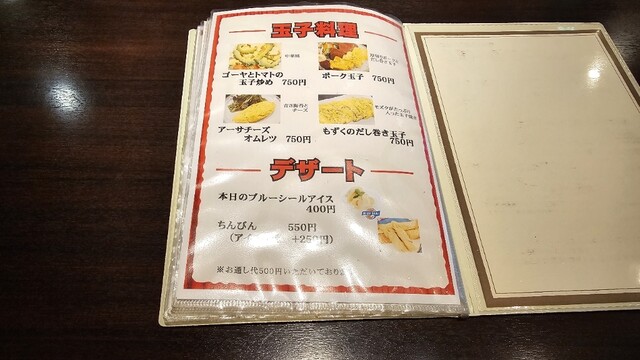 玉子料理
中華風
ゴーヤとトマトの
玉子炒め 750円
ポーク玉子 750円
チーズ
アーサチーズ
オムレツ 750円
モズクがたっぷり
入った玉子焼き
もずくのだし巻き玉子
750円
デザート
本日のブルーシールアイス
400円
ちんびん 550円
(アイ +250円)
※お通し代500円いただいており